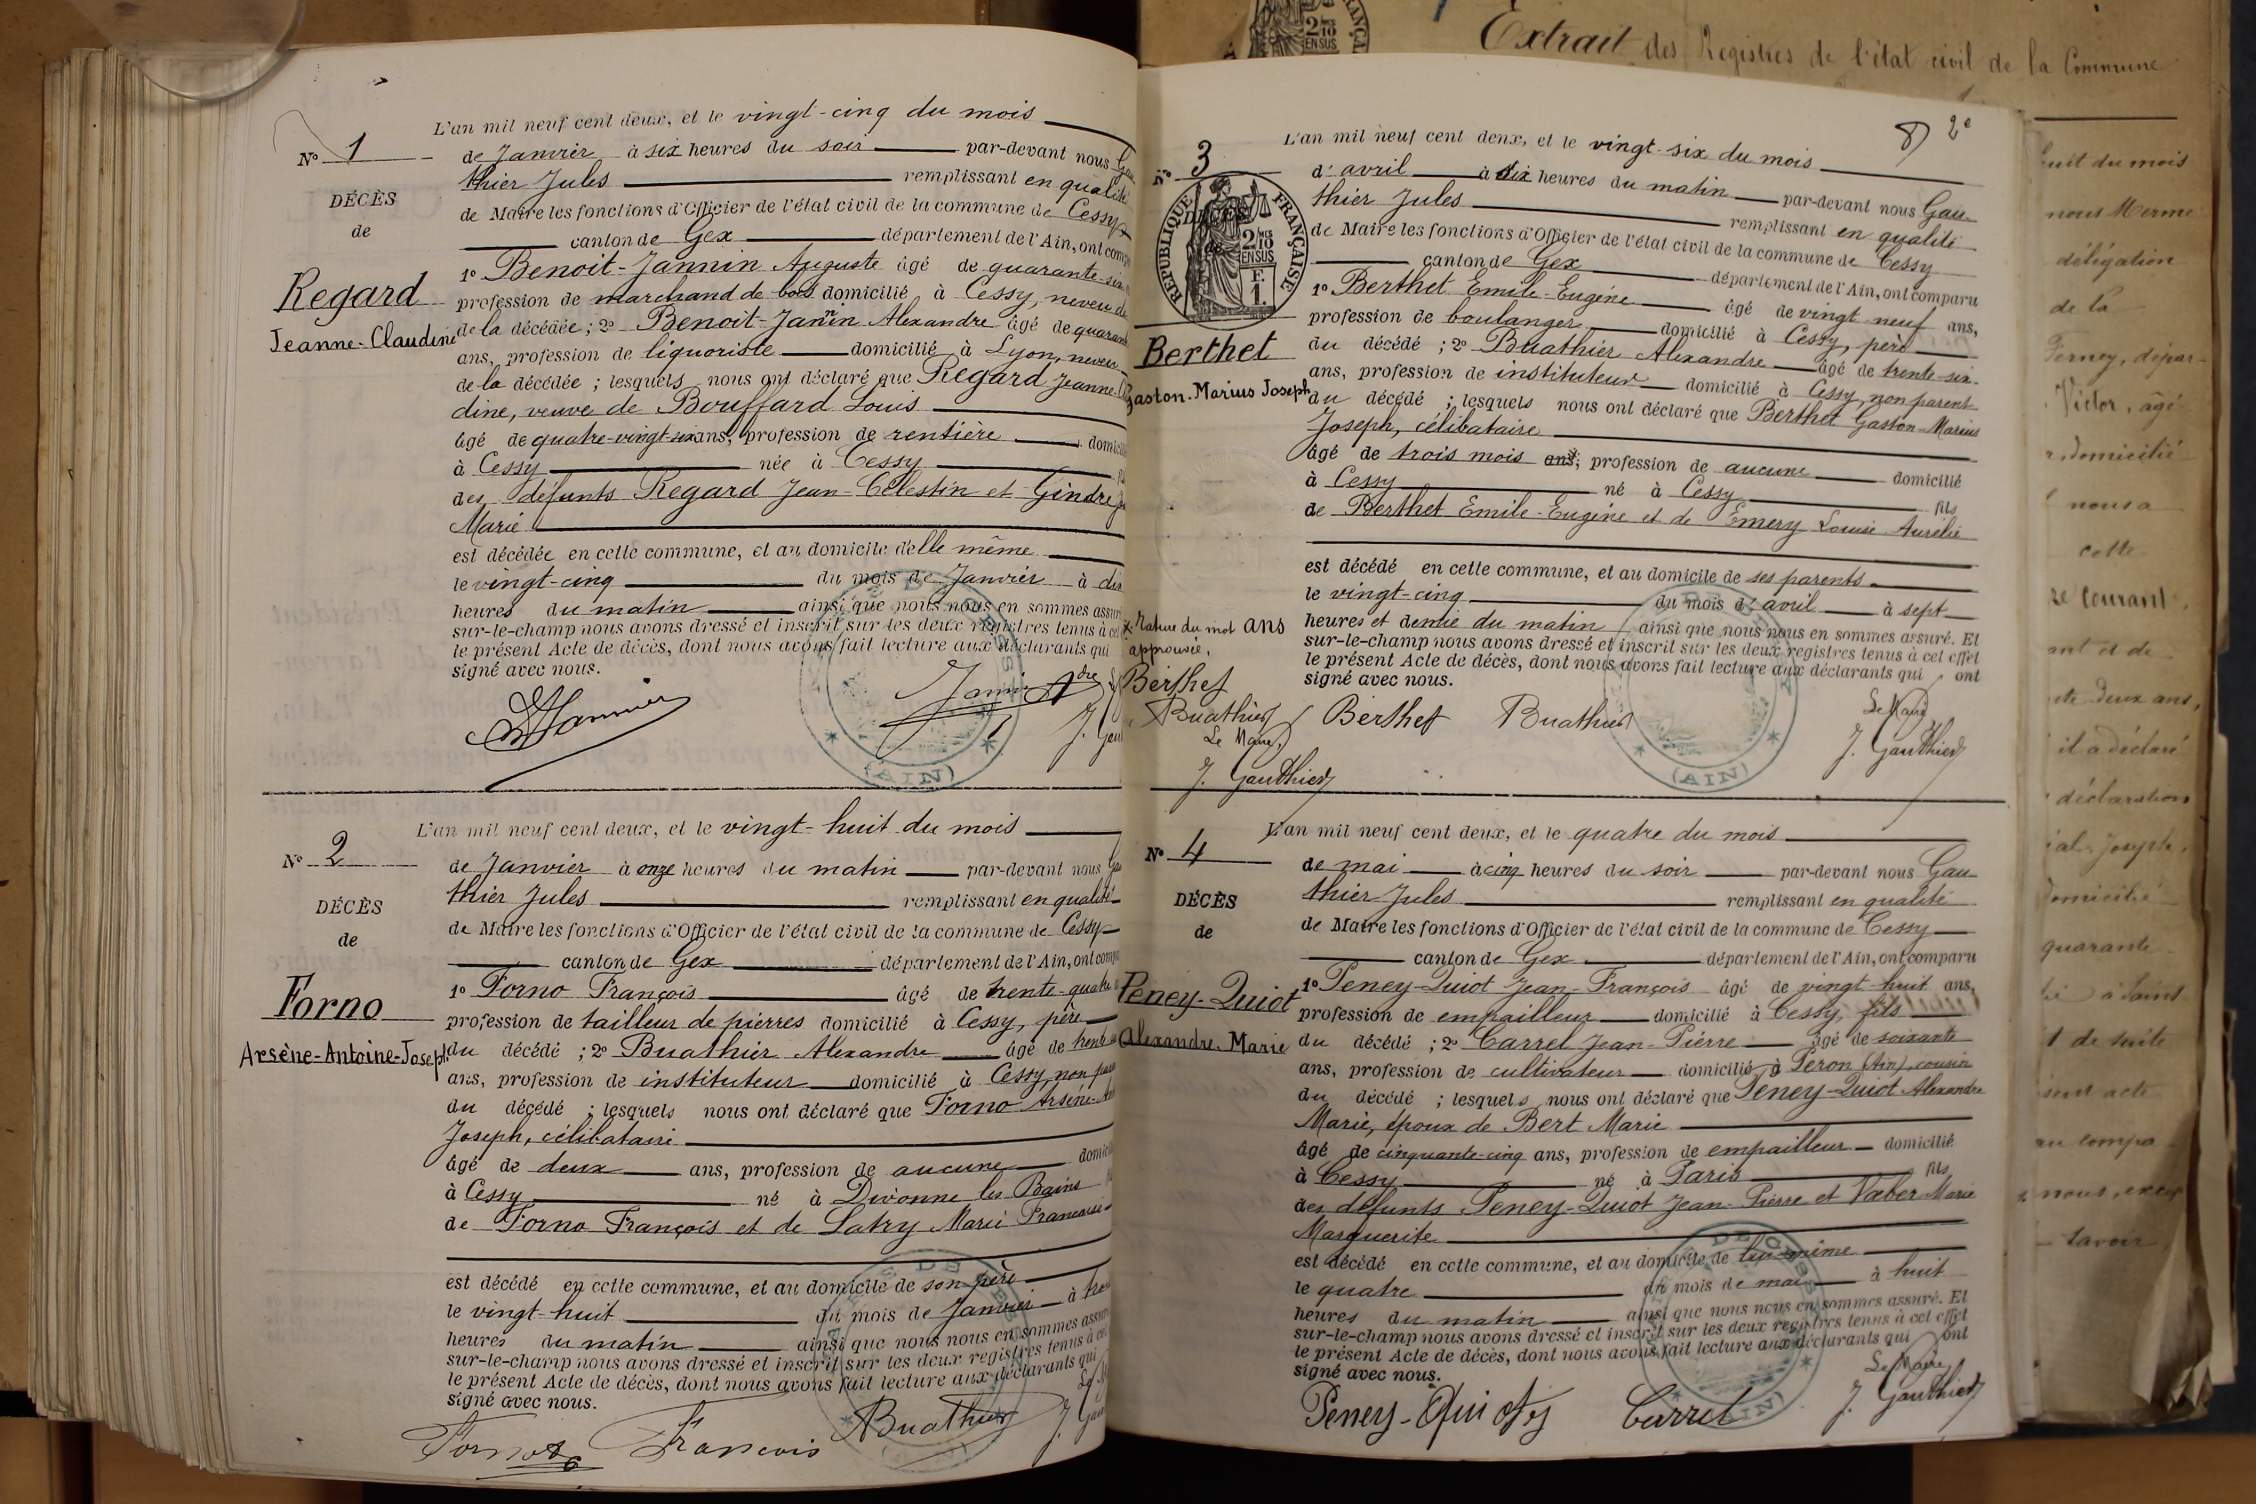 L'an mil neuf cent deux, et le vingt-cinq du mois
No 1
de Janvier à six heures du soir par-devant nous Gau
thier Jules remplissant en qualité
DÉCÈS
de Maire les fonctions d'Officier de l'état civil de la commune de Cessy
de
canton de Gex département de l'Ain, ont comp
1o Benoit-Jannin Auguste âgé de quarante-six
Regard
profession de marchand de bois domicilié à Cessy, neveu de
Jeanne-Claudine
de la décédée ; 2o Benoit-Jannin Alexandre âgé de quarante
ans, profession de liquoriste domicilié à Lyon, neveu
de la décédée ; lesquels nous ont déclaré que Regard Jeanne-Cl
dine, veuve de Bouffard Louis
âgé de quatre-vingt-six ans, profession de rentière domici
à Cessy née à Cessy
des défunts Regard Jean-Célestin et Gindre
Marie
est décédée en cette commune, et au domicile d'elle même
le vingt-cinq du mois de Janvier à dix
heures du matin ainsi que nous nous en sommes assur
sur-le-champ nous avons dressé et inscrit sur les deux registres tenus à cet
le présent Acte de décès, dont nous avons fait lecture aux déclarants qui
signé avec nous.
Jannin Adre
J. Gau
L'an mil neuf cent deux, et le vingt-huit du mois
No 2
de Janvier à onze heures du matin par-devant nous Gau
thier Jules remplissant en qualité
DÉCÈS
de Maire les fonctions d'Officier de l'état civil de la commune de Cessy
de
canton de Gex département de l'Ain, ont comp
1o Forno François âgé de trente-quatre
Forno
profession de tailleur de pierres domicilié à Cessy, père
Arsène-Antoine-Joseph
du décédé ; 2o Buathier Alexandre âgé de trente-six
ans, profession de instituteur domicilié à Cessy, non paren
du décédé ; lesquels nous ont déclaré que Forno Arsène-An
Joseph, célibataire
âgé de deux ans, profession de aucune domici
à Cessy né à Divonne les Bains
de Forno François et de Satry Marie Francoise
est décédé en cette commune, et au domicile de son père
le vingt-huit du mois de Janvier à
heures du matin ainsi que nous nous en sommes assur
sur-le-champ nous avons dressé et inscrit sur les deux registres tenus à cet
le présent Acte de décès, dont nous avons fait lecture aux déclarants qui
signé avec nous.
Forno François Buathier J. Gau
Extrait des Registres de l'état civil de la Commune
8) 2e
L'an mil neuf cent deux, et le vingt-six du mois
No 3
d'avril à dix heures du matin par-devant nous Gau
thier Jules remplissant en qualité
RÉPUBLIQUE FRANÇAISE
DÉCÈS
de
2/10 EN SUS
F. 1.
de Maire les fonctions d'Officier de l'état civil de la commune de Cessy
canton de Gex département de l'Ain, ont comparu
1o Berthet Emile-Eugène âgé de vingt neuf ans,
profession de boulanger domicilié à Cessy, père
Berthet
du décédé ; 2o Buathier Alexandre âgé de trente-six
Gaston-Marius Joseph
ans, profession de instituteur domicilié à Cessy, non parent
du décédé ; lesquels nous ont déclaré que Berthet Gaston-Marius
Joseph, célibataire
âgé de trois mois ans, profession de aucune domicilié
à Cessy né à Cessy fils
de Berthet Emile-Eugène et de Emery Louise Aurélie
est décédé en cette commune, et au domicile de ses parents
le vingt-cinq du mois d'avril à sept
heures et demie du matin ainsi que nous nous en sommes assuré. Et
sur-le-champ nous avons dressé et inscrit sur les deux registres tenus à cet effet
le présent Acte de décès, dont nous avons fait lecture aux déclarants qui ont
signé avec nous.
x Rature du mot ans
approuvée,
Berthet
Buathier
Le Maire,
J. Gauthier
Berthet Buathier Le Maire
J. Gauthier
L'an mil neuf cent deux, et le quatre du mois
No 4
de mai à cinq heures du soir par-devant nous Gau
thier Jules remplissant en qualité
DÉCÈS
de Maire les fonctions d'Officier de l'état civil de la commune de Cessy
de
canton de Gex département de l'Ain, ont comparu
1o Peney-Quiot Jean-François âgé de vingt-huit ans,
Peney-Quiot
profession de empailleur domicilié à Cessy, fils
Alexandre-Marie
du décédé ; 2o Carrel Jean-Pierre âgé de soixante
ans, profession de cultivateur domicilié à Peron (Ain), cousin
du décédé ; lesquels nous ont déclaré que Peney-Quiot Alexandre
Marie, époux de Bert Marie
âgé de cinquante-cinq ans, profession de empailleur domicilié
à Cessy né à Paris fils
des défunts Peney-Quiot Jean-Pierre et Væber Marie
Marguerite
est décédé en cette commune, et au domicile de lui-même
le quatre du mois de mai à huit
heures du matin ainsi que nous nous en sommes assuré. Et
sur-le-champ nous avons dressé et inscrit sur les deux registres tenus à cet effet
le présent Acte de décès, dont nous avons fait lecture aux déclarants qui ont
signé avec nous.
Le Maire
Peney-Quiot Carrel J. Gauthier
huit du mois
nous Merme
délégation
de la
Ferney, dépar-
Victor, âgé
domicilié
nous a
cette
courant
ant et de
deux ans,
il a déclaré
déclaration
Joseph,
domicilié
quarante
à Saint
de suite
sent acte
compa
nous, excep
savoir